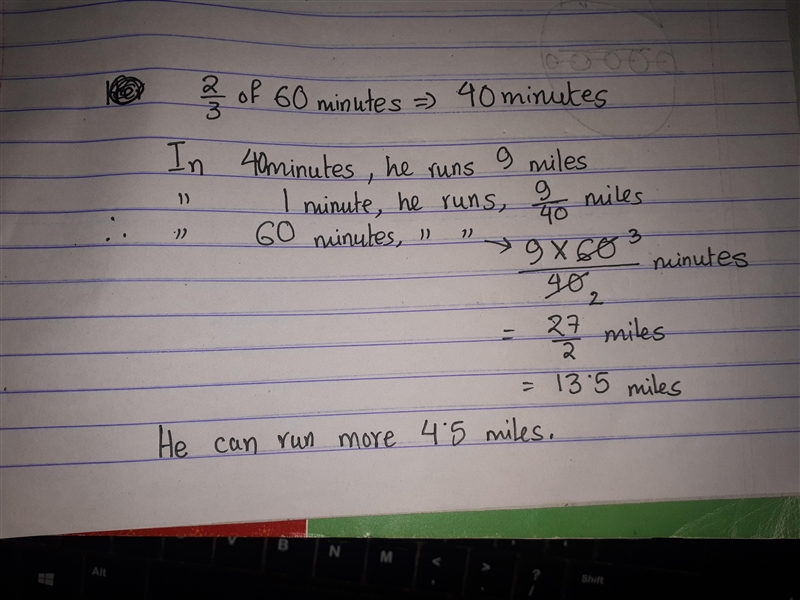 2/3 of 60 minutes ⇒ 40 minutes
In 40minutes, he runs 9 miles
" 1 minute, he runs, 9/40 miles
∴ " 60 minutes, " " → 9 × 60 3 / 40 2 minutes
= 27/2 miles
= 13.5 miles
He can run more 4.5 miles.
V B N M < > ?
Alt Shift